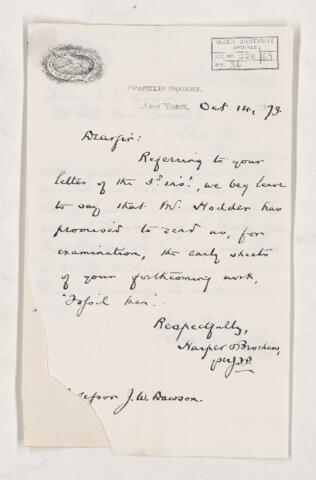 McGILL UNIVERSITY
ARCHIVES
ACC. NO. 2211/69
REF. 36
FRANKLIN SQUARE,
NEW YORK, Oct 14, 1879.
Dear Sir:
Referring to your
letter of the 3d inst., we beg leave
to say that Mr. Hodder has
promised to send us, for
examination, the early sheets
of your forthcoming work,
"Fossil Men".
Respectfully,
Harper & Brothers,
per
fessor J. W. Dawson.